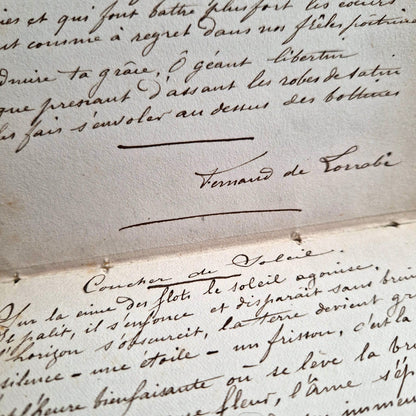 et qui font battre plus fort les cœurs
comme à regret dans nos frêles poitrines
admire ta grâce, Ô géant libertin
que prenant d'assaut les robes de satin
les fais s'envoler au dessus des bottines
Fernand de Lorrabe
Coucher de Soleil.
Sur la cime des flots le soleil agonise,
pâlit, il s'enfonce et disparaît sans bruit
l'horizon s'obscurcit, la terre devient
silence - une étoile - un frisson, c'est la
l'heure bienfaisante où se lève la
fleur, l'âme